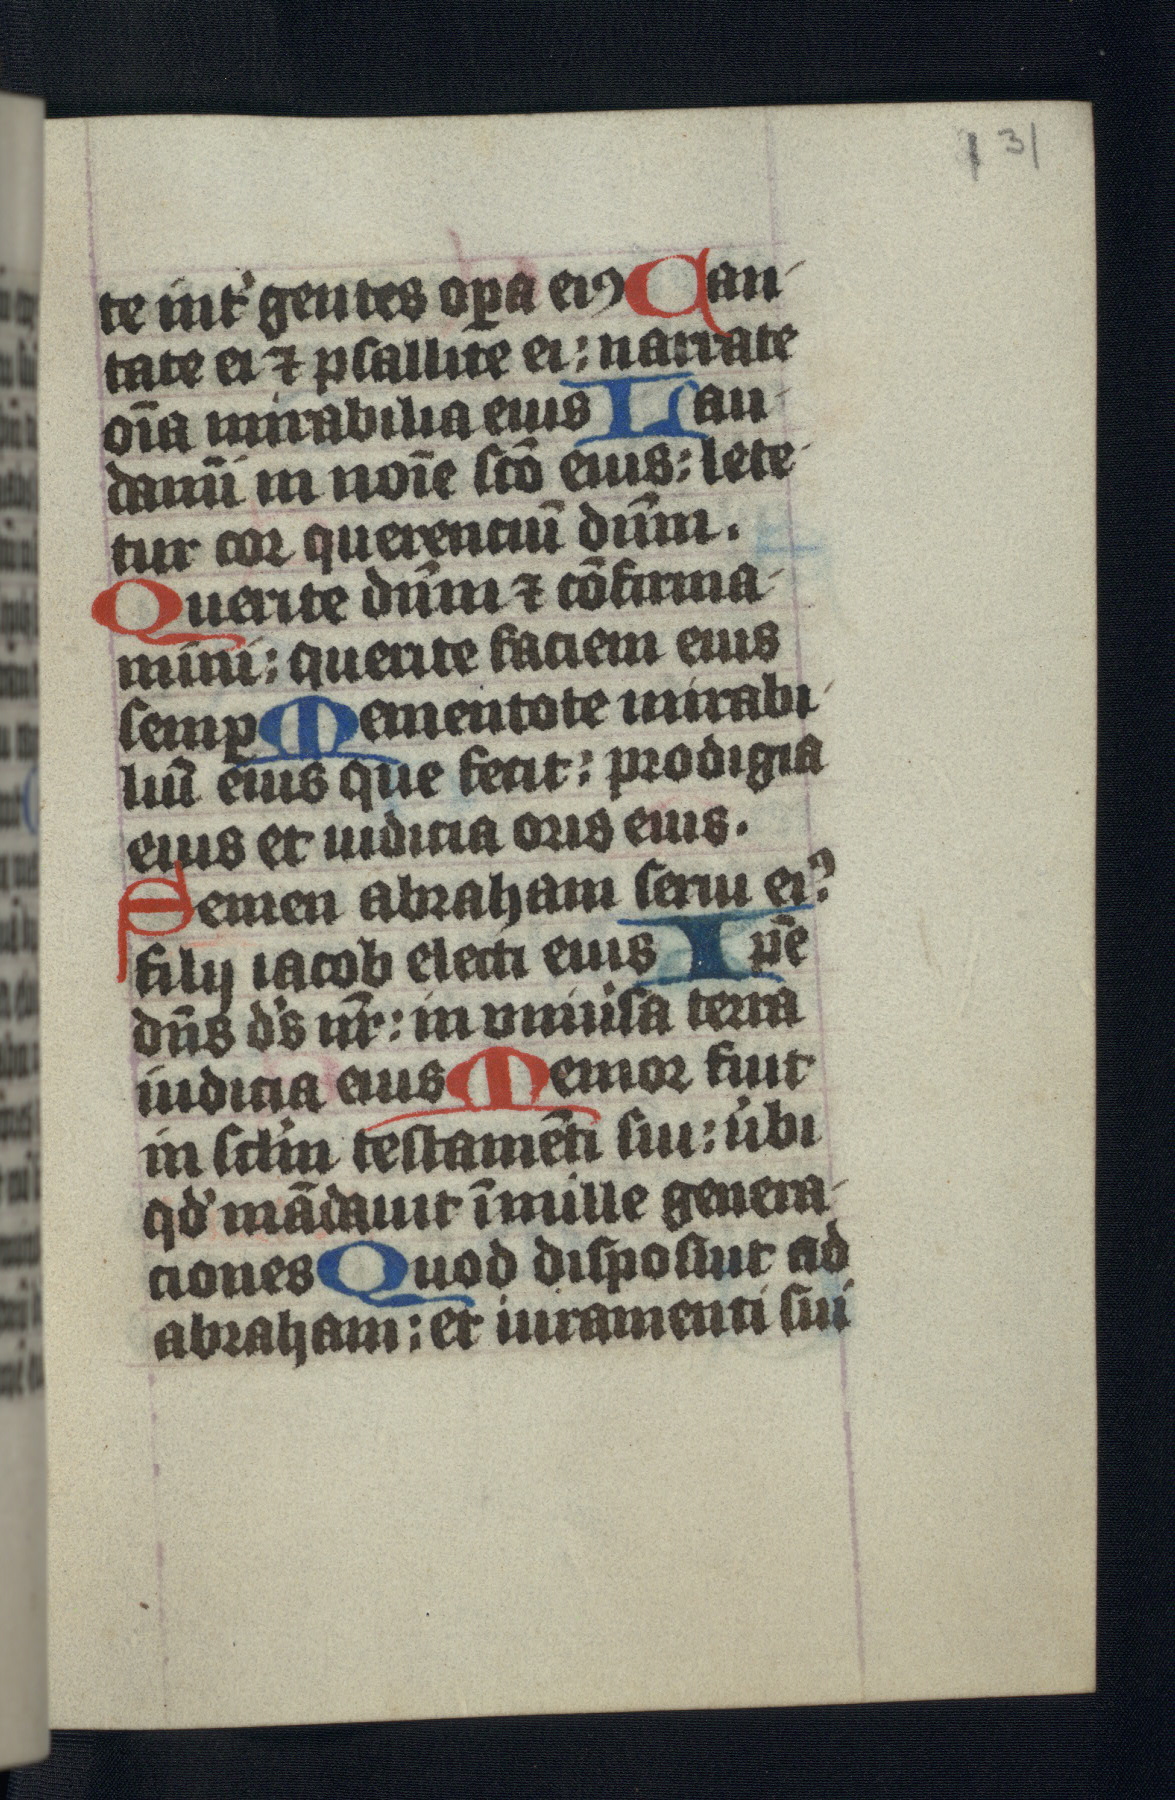 131
te int͛ gentes oꝑa eiꝯ Can-
tate ei ⁊ psallite ei: narrate
oīa mirabilia eius Lau-
damī in noīe sc̄o eius: lete-
tur cor querenciū dn̄m.
Querite dn̄m ⁊ cōfirma-
mini: querite faciem eius
semꝑ Mementote mirabi-
liū eius que fecit: prodigia
eius et iudicia oris eius.
Semen abraham serui eiꝰ
filij iacob electi eius Ip̄e
dn̄s d's nr̄: in uniu'sa terra
iudicia eius Memor fuit
in sc'lm testamēti sui: u'bi
qd' mādauit ī mille genera-
ciones Quod disposuit ad
abraham: et iuramenti sui